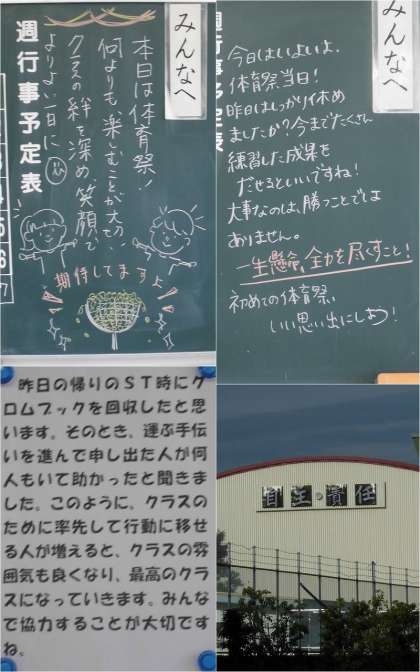 みんなへ
本日は体育祭！
何よりも楽しむことが大切！
クラスの絆を深め、笑顔で
よりよい一日に
期待してますよ
週行事予定表
5
6
7
みんなへ
今日はいよいよ、
体育祭当日！
昨日はしっかり休め
ましたか？今までたくさん
練習した成果を
だせるといいですね！
大事なのは、勝つことでは
ありません。
一生懸命、全力を尽くすこと！
初めての体育祭、
いい思い出にしよう！
昨日の帰りのＳＴ時にク
ロムブックを回収したと思
います。そのとき、運ぶ手伝
いを進んで申し出た人が何
人もいて助かったと聞きま
した。このように、クラスの
ために率先して行動に移せ
る人が増えると、クラスの雰
囲気も良くなり、最高のクラ
スになっていきます。みんな
で協力することが大切です
ね。
自主・責任